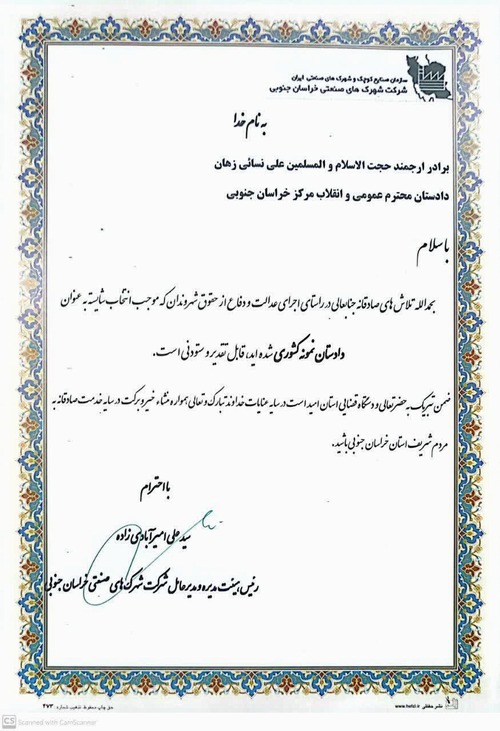 سازمان صنایع کوچک و شهرک های صنعتی ایران
شرکت شهرک های صنعتی خراسان جنوبی
به نام خدا
برادر ارجمند حجت الاسلام و المسلمین علی نسائی زهان
دادستان محترم عمومی و انقلاب مرکز خراسان جنوبی
با سلام
بحمدالله تلاش های صادقانه جنابعالی در راستای اجرای عدالت و دفاع از حقوق شهروندان که موجب انتخاب شایسته به عنوان
دادستان نمونه کشوری شده اید، قابل تقدیر و ستودنی است.
ضمن تبریک به حضرتعالی و دستگاه قضایی استان امید است در سایه عنایات خداوند تبارک و تعالی همواره منشاء خیر و برکت در سایه خدمت صادقانه به
مردم شریف استان خراسان جنوبی باشید.
با احترام
سید علی امیرآبادی زاده
رئیس هیئت مدیره و مدیرعامل شرکت شهرک های صنعتی خراسان جنوبی
حق چاپ محفوظ تذهیب شماره ۴۷۳
www.hefzi.ir نشر حفظی
CS Scanned with CamScanner